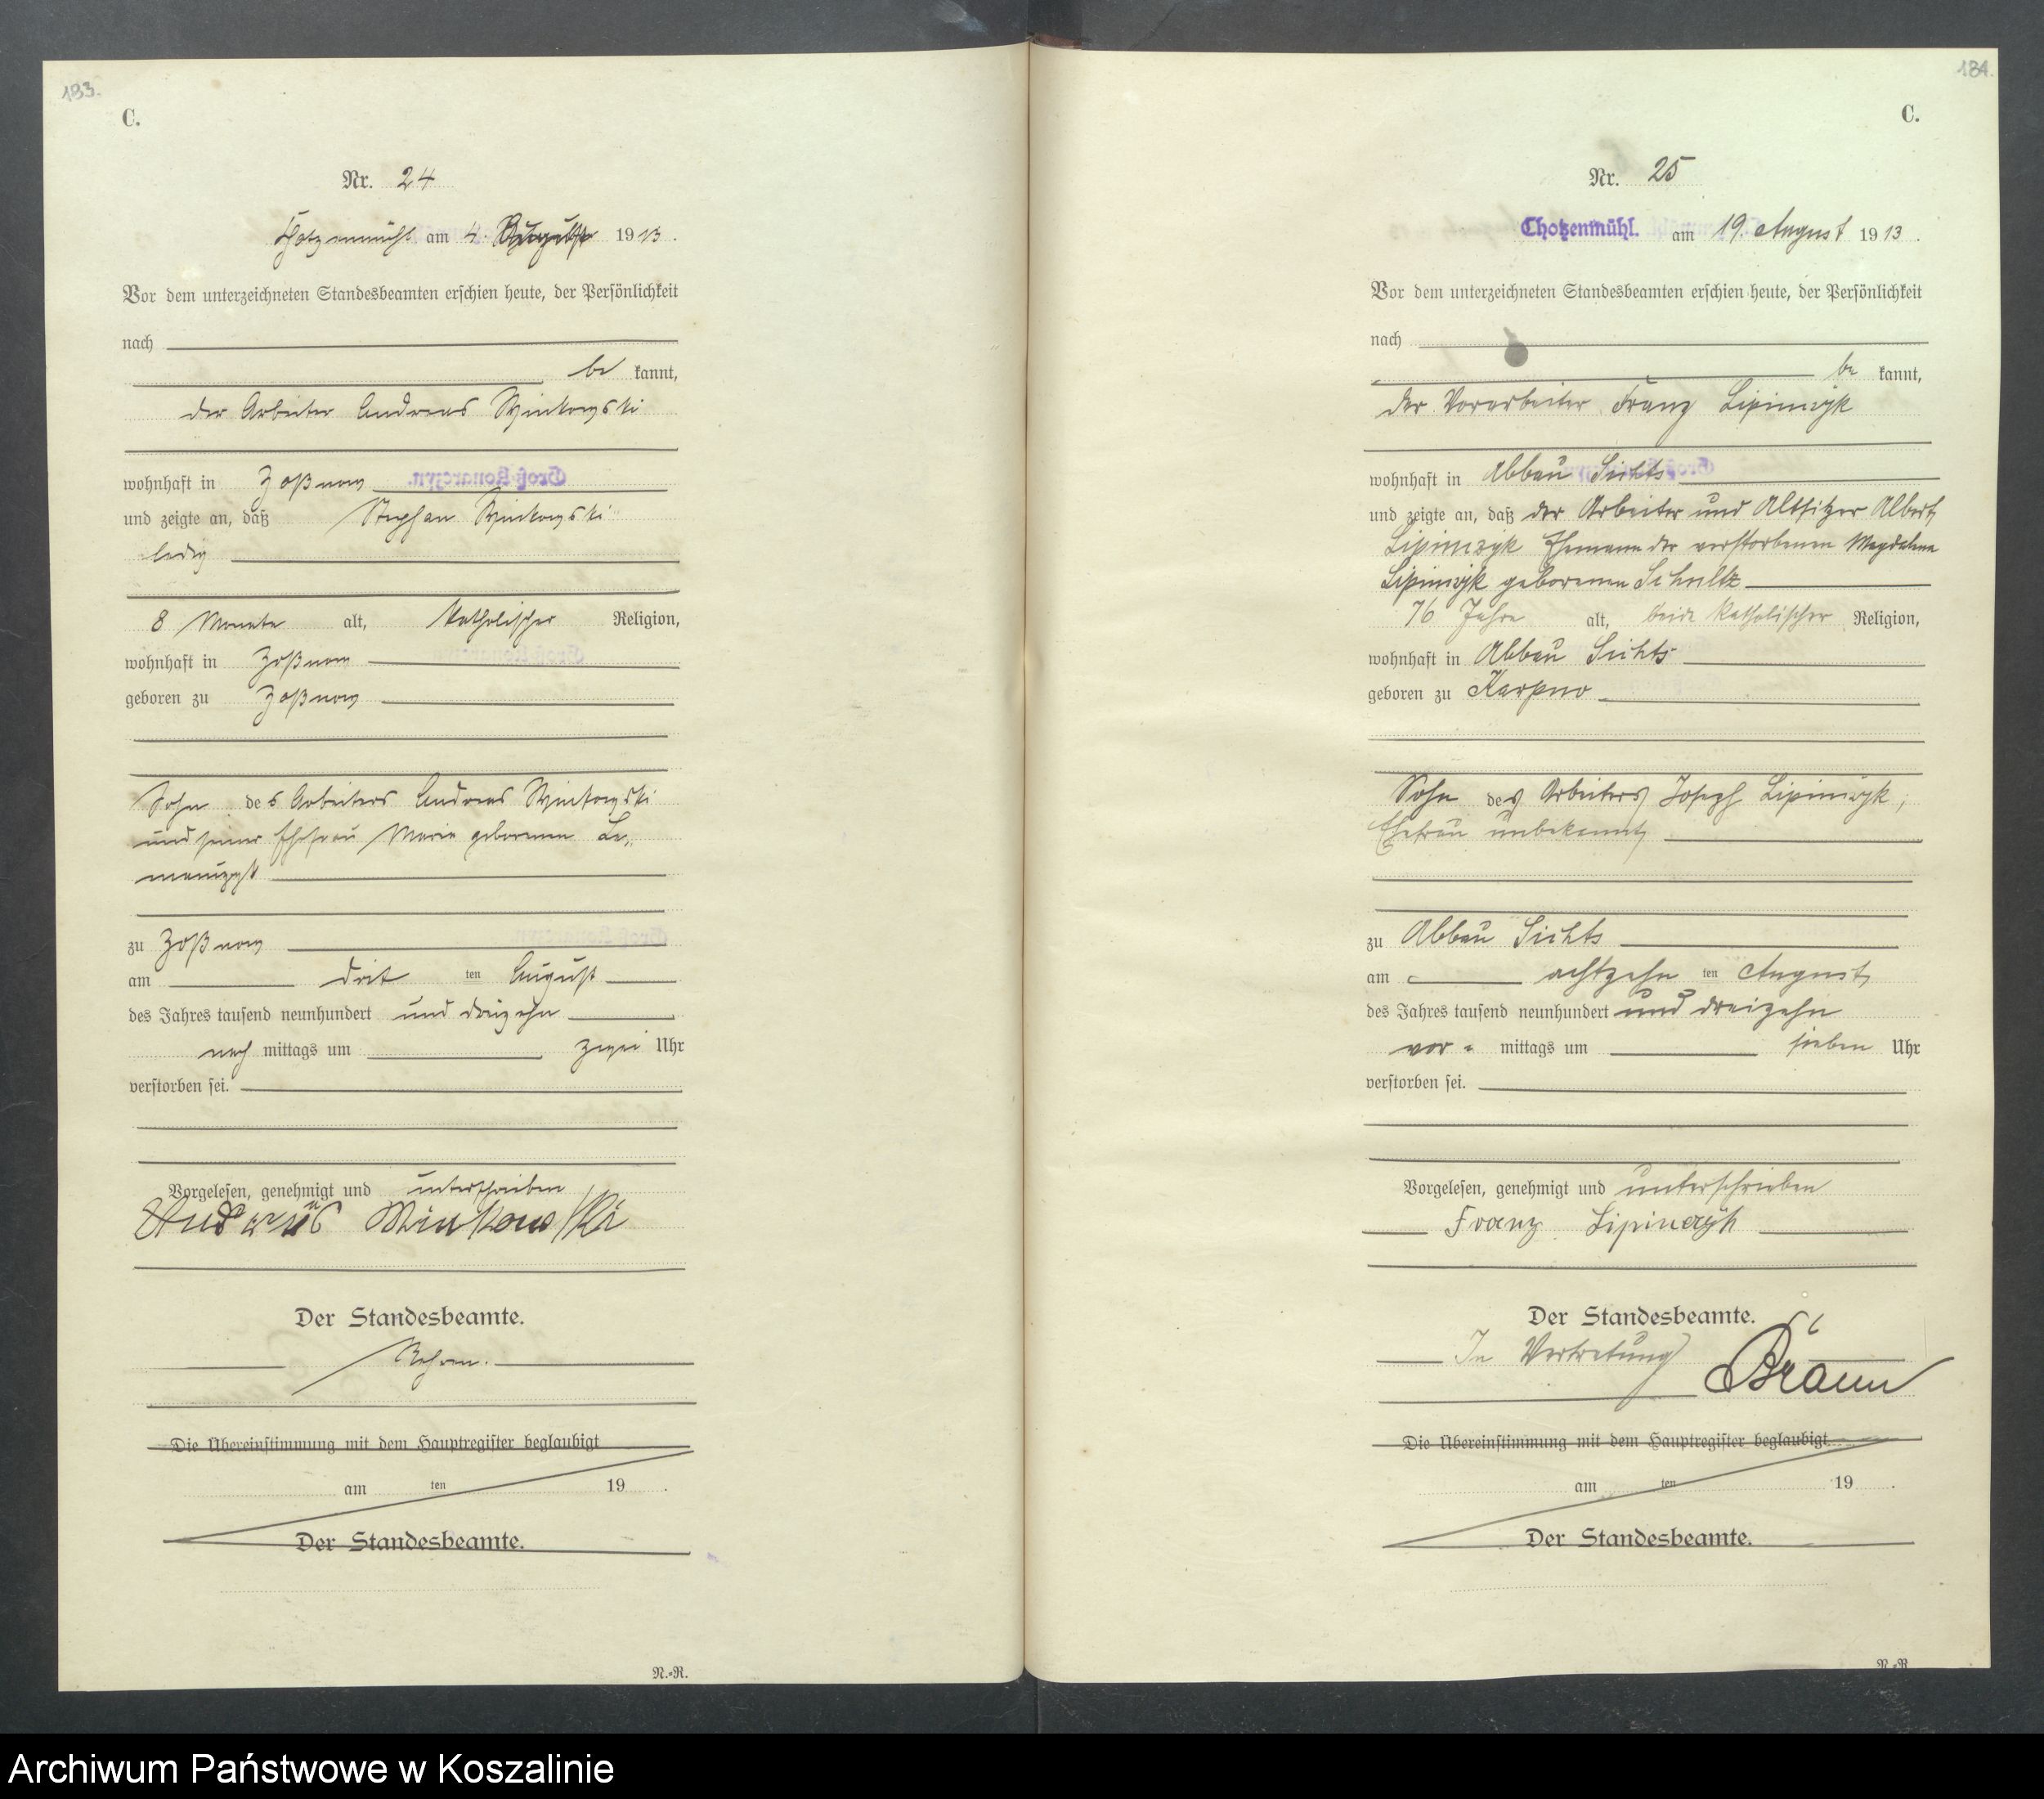 183.
C.
Nr. 24
am 4. August 1913.
Vor dem unterzeichneten Standesbeamten erschien heute, der Persönlichkeit
nach
be kannt,
der Arbeiter Andreas
wohnhaft in Zoßnow
und zeigte an, daß Stephan
ledig
8 Monate alt, katholischer Religion,
wohnhaft in Zoßnow
geboren zu Zoßnow
Sohn des Arbeiters Andreas
und seiner Ehefrau Maria geborenen
zu Zoßnow
am drit ten August
des Jahres tausend neunhundert und dreizehn
nach mittags um zwei Uhr
verstorben sei.
Vorgelesen, genehmigt und unterschrieben
Der Standesbeamte.
Die Übereinstimmung mit dem Hauptregister beglaubigt
am ten 19 .
Der Standesbeamte.
N.-R.
184.
C.
Nr. 25
Chotzenmühl. am 19. August 1913.
Vor dem unterzeichneten Standesbeamten erschien heute, der Persönlichkeit
nach
be kannt,
der Vorarbeiter Franz Lipinczyk
wohnhaft in Abbau Sichts
und zeigte an, daß der Arbeiter und Altsitzer Albert
Lipinczyk Ehemann der verstorbenen Magdalena
Lipinczyk geborenen Schultz
76 Jahre alt, beide katholischer Religion,
wohnhaft in Abbau Sichts
geboren zu Karpno
Sohn des Arbeiters Joseph Lipinczyk,
Ehefrau unbekannt
zu Abbau Sichts
am achtzehn ten August
des Jahres tausend neunhundert und dreizehn
vor- mittags um sieben Uhr
verstorben sei.
Vorgelesen, genehmigt und unterschrieben
Franz Lipinczyk
Der Standesbeamte.
In Vertretung
Braun
Die Übereinstimmung mit dem Hauptregister beglaubigt
am ten 19 .
Der Standesbeamte.
N.-R.
Archiwum Państwowe w Koszalinie